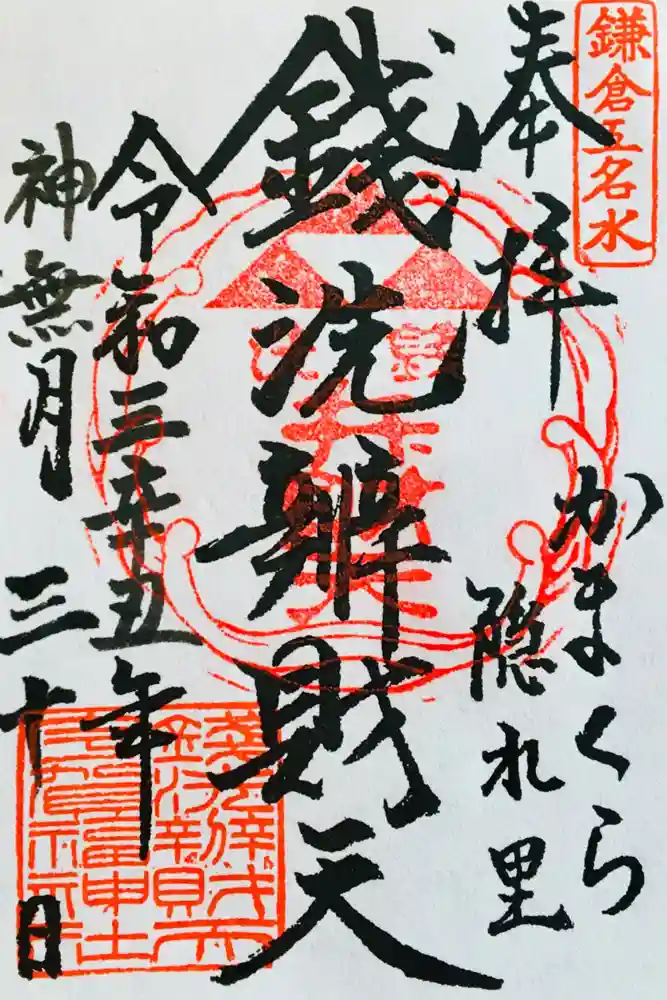 鎌倉五名水
奉拝
かまくら
隠れ里
銭洗辨財天
令和三辛丑年
神無月 三十日